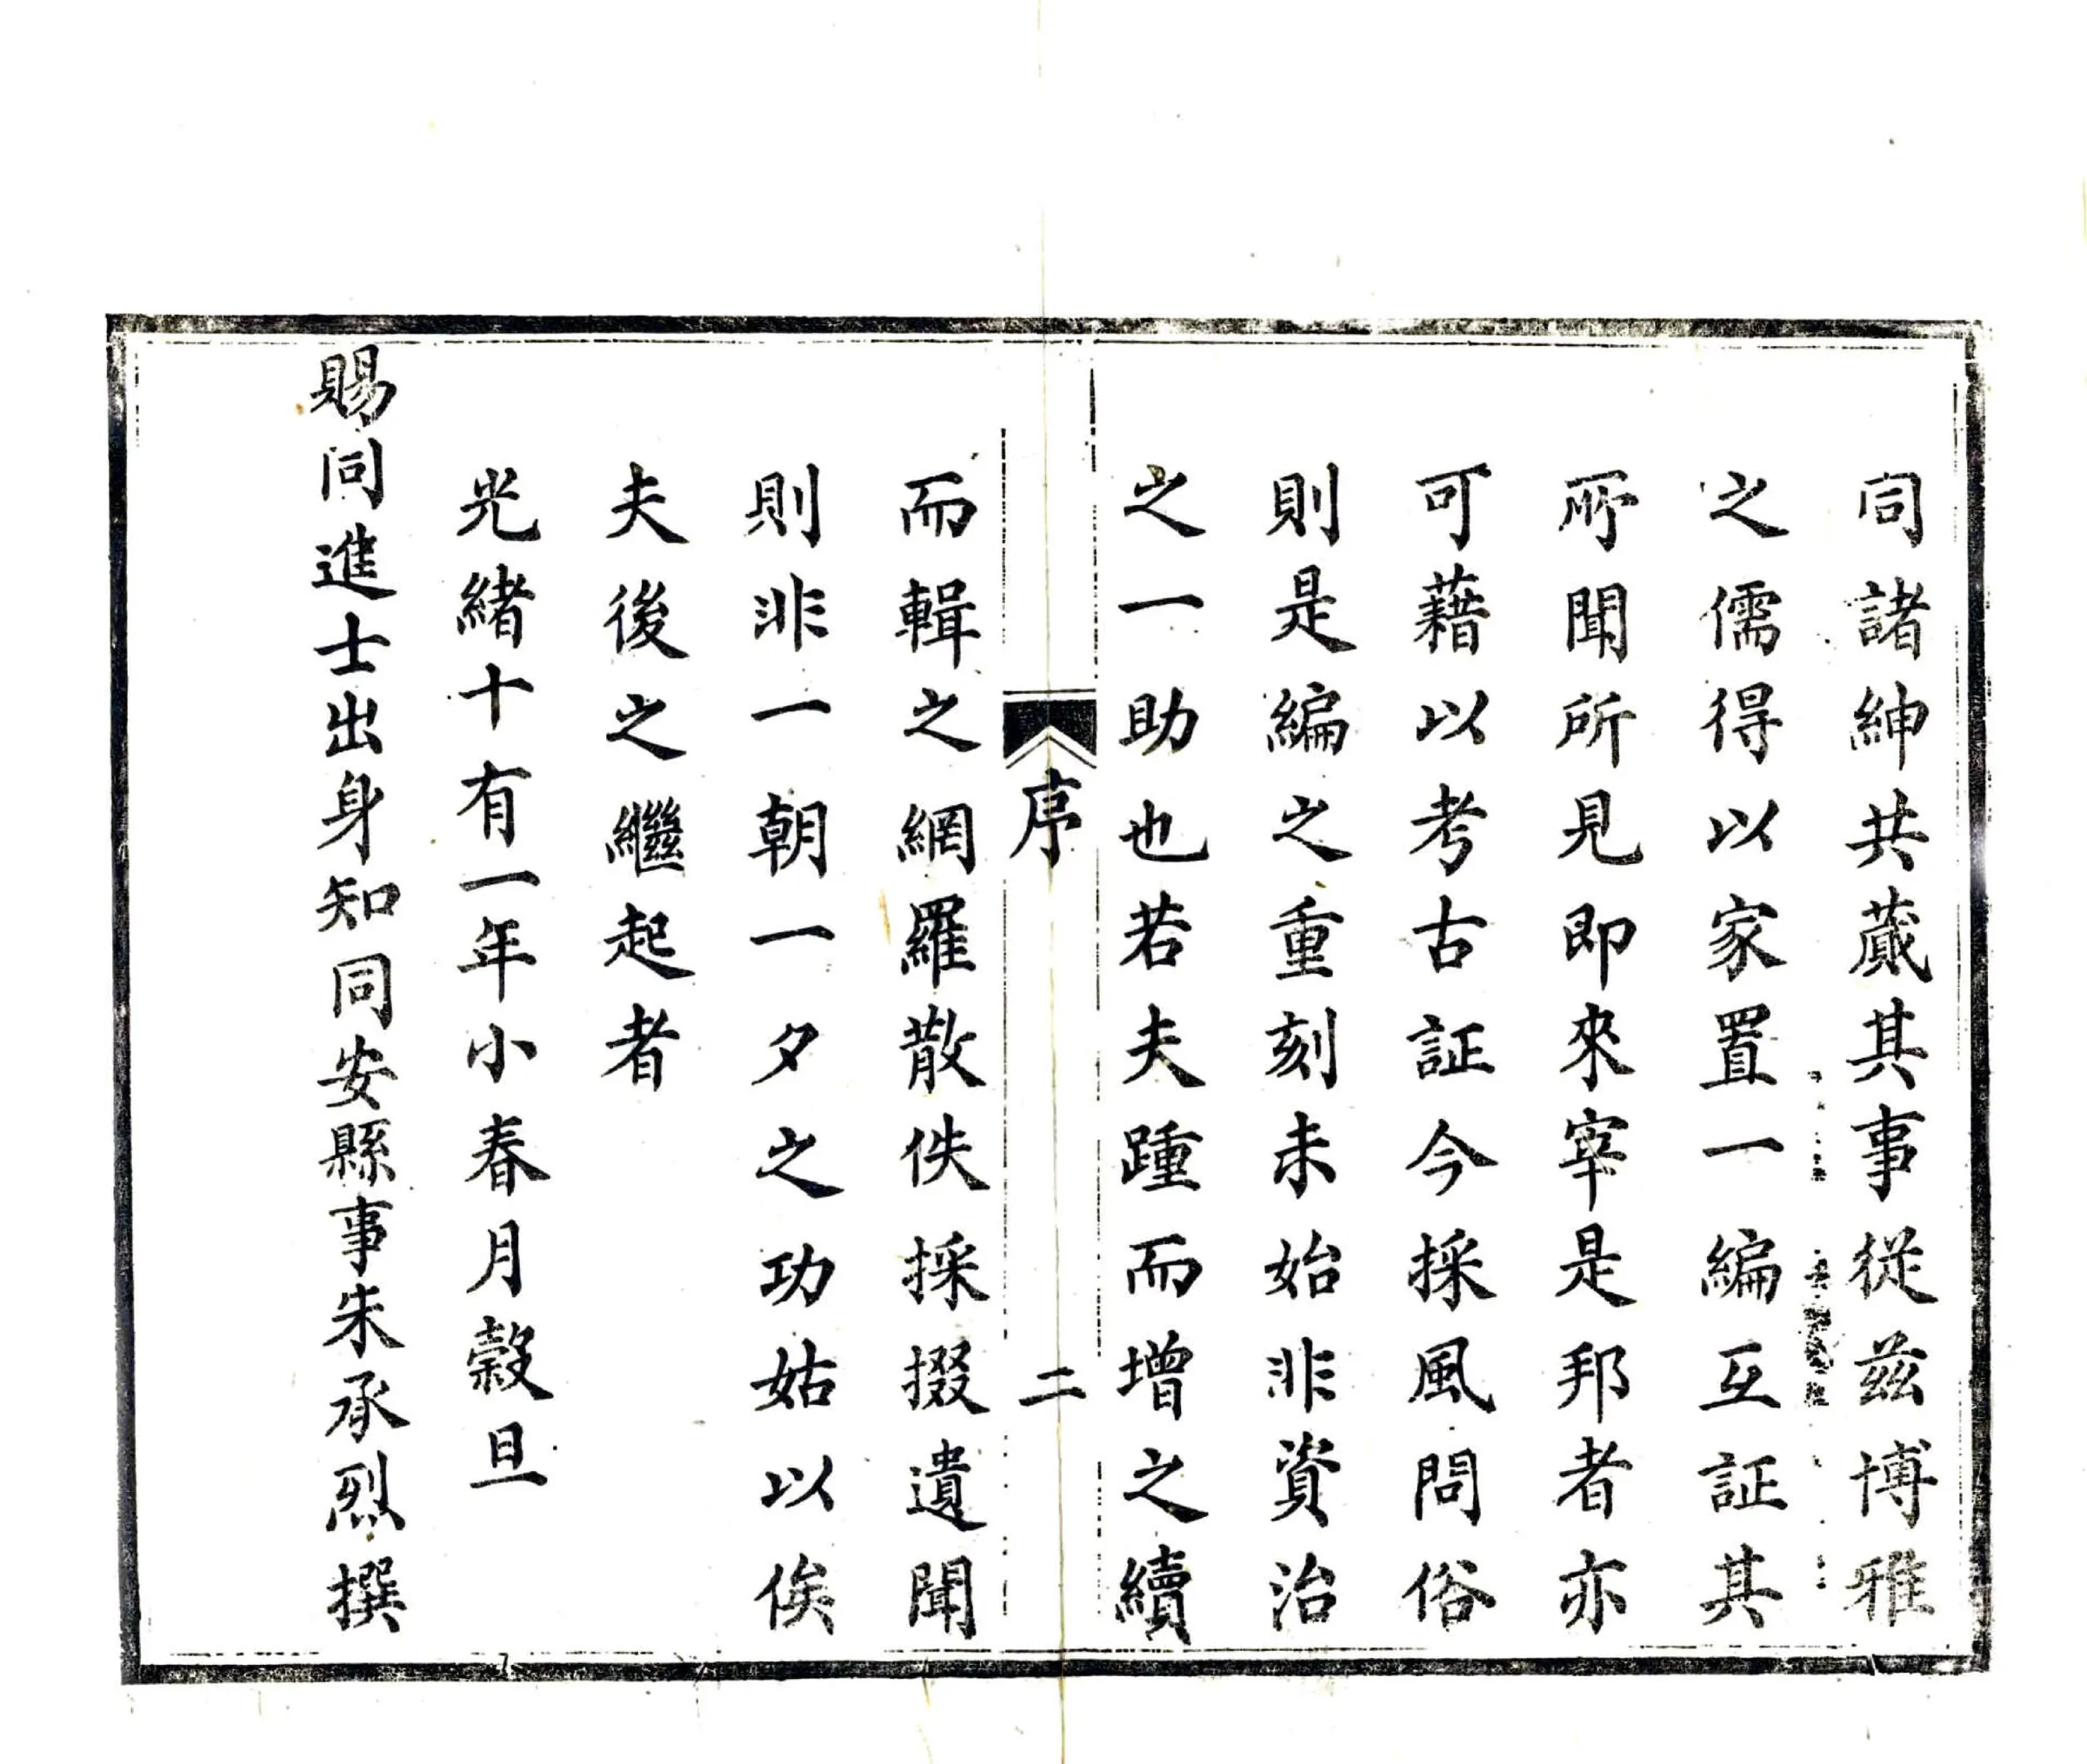 同諸紳共蕆其事從茲博雅
之儒得以家置一編互証其
所聞所見即來宰是邦者亦
可藉以考古証今採風問俗
則是編之重刻未始非資治
之一助也若夫踵而增之續
序
二
而輯之網羅散佚採掇遺聞
則非一朝一夕之功姑以俟
夫後之繼起者
光緒十有一年小春月穀旦
賜同進士出身知同安縣事朱承烈撰